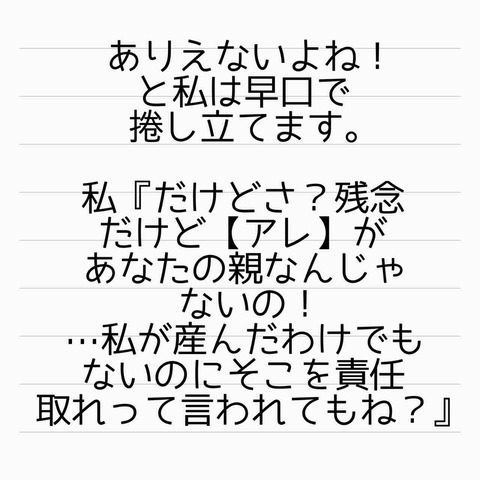 ありえないよね！
と私は早口で
捲し立てます。
私『だけどさ？残念
だけど【アレ】が
あなたの親なんじゃ
ないの！
…私が産んだわけでも
ないのにそこを責任
取れって言われてもね？』